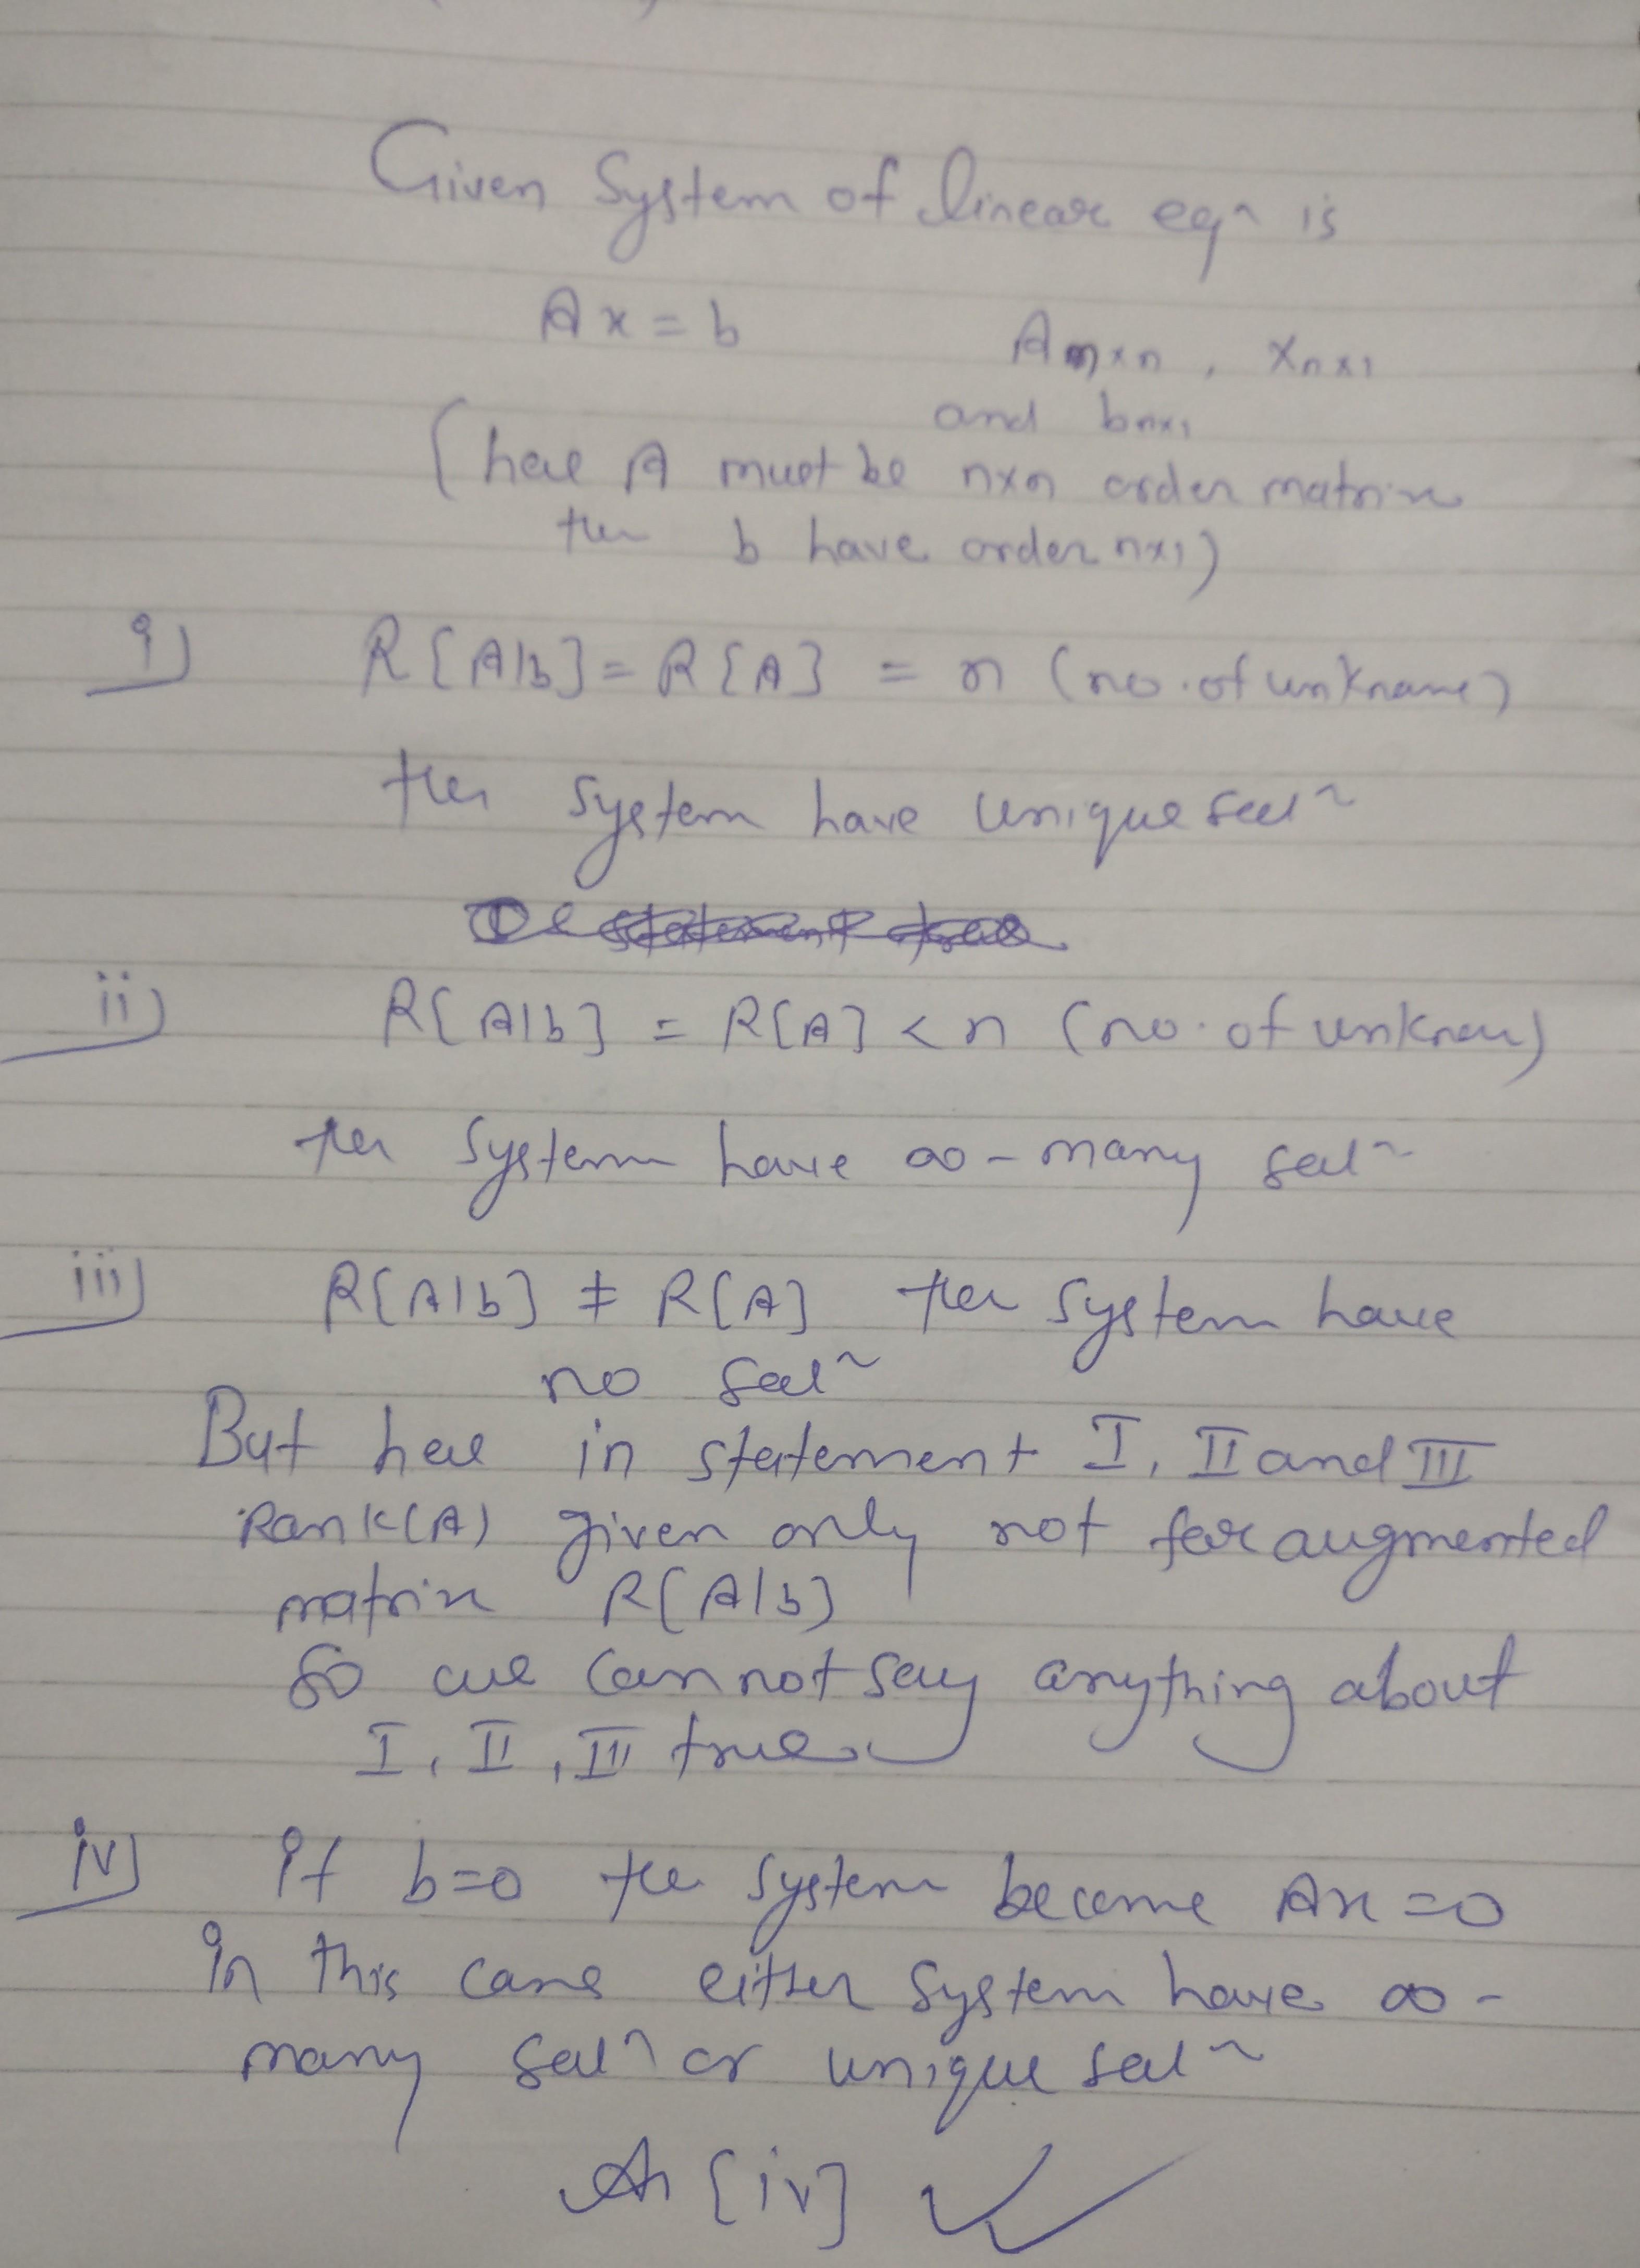 Given System of linear eqn is
Ax = b      Am×n , Xn×1
and bn×1
(here A must be n×n order matrix
then b have order n×1)
i) R[A|b] = R[A] = n (no. of unknown)
then system have unique soln
ii) R[A|b] = R[A] < n (no. of unknown)
then System have ∞-many soln
iii) R[A|b] ≠ R[A] then system have
no soln
But here in statement I, II and III
Rank(A) given only not for augmented
matrix R[A|b]
So we cannot say anything about
I, II, III true
iv) If b=0 the system become Ax=0
In this case either system have ∞-
many soln or unique soln
An [iv]